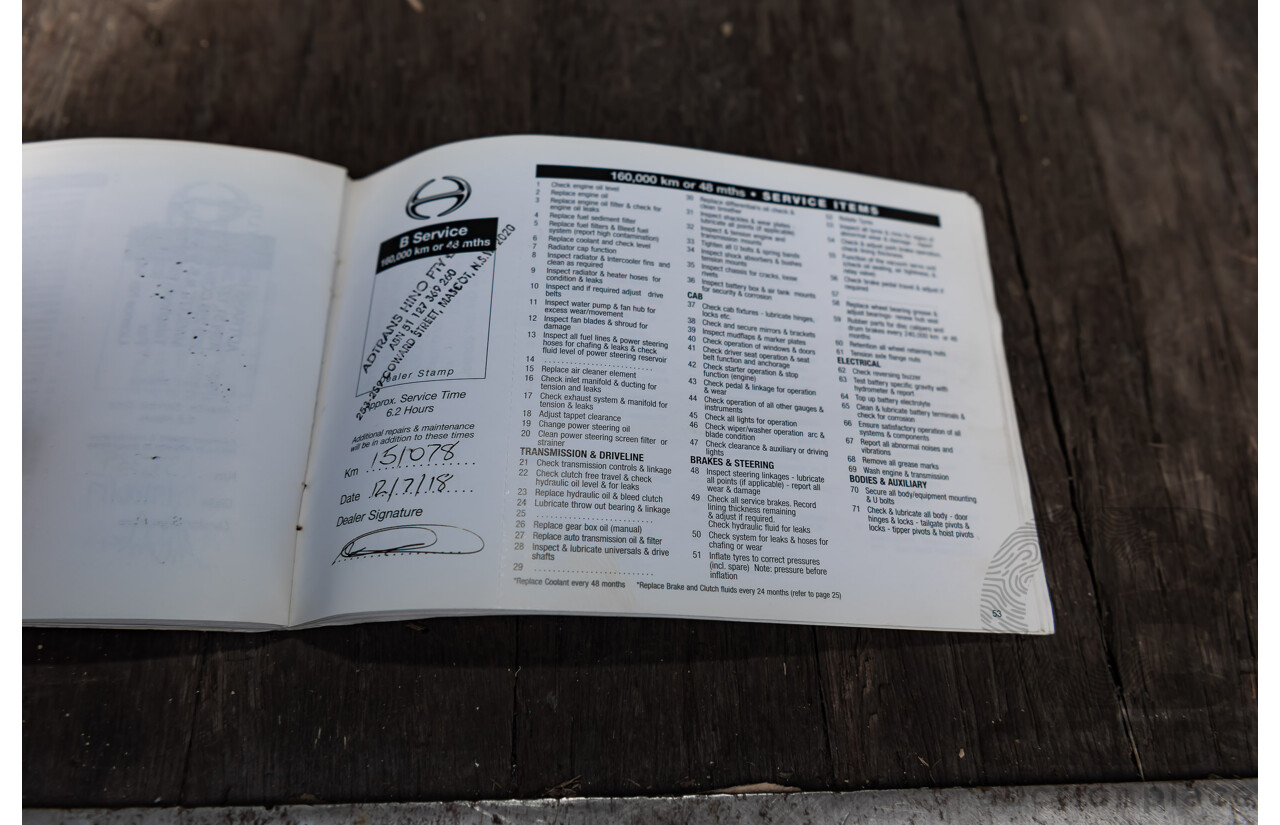 B Service
160,000 km or 48 mths
ADTRANS HINO PTY
ABN 51 127 369 260
253-259 COWARD STREET, MASCOT, N.S.W. 2020
Dealer Stamp
Approx. Service Time
6.2 Hours
Additional repairs & maintenance
will be in addition to these times
Km 151078
Date 12/7/18
Dealer Signature
160,000 km or 48 mths • SERVICE ITEMS
1 Check engine oil level
2 Replace engine oil
3 Replace engine oil filter & check for
engine oil leaks
4 Replace fuel sediment filter
5 Replace fuel filters & Bleed fuel
system (report high contamination)
6 Replace coolant and check level
7 Radiator cap function
8 Inspect radiator & intercooler fins and
clean as required
9 Inspect radiator & heater hoses for
condition & leaks
10 Inspect and if required adjust drive
belts
11 Inspect water pump & fan hub for
excess wear/movement
12 Inspect fan blades & shroud for
damage
13 Inspect all fuel lines & power steering
hoses for chafing & leaks & check
fluid level of power steering reservoir
14
15 Replace air cleaner element
16 Check inlet manifold & ducting for
tension and leaks
17 Check exhaust system & manifold for
tension & leaks
18 Adjust tappet clearance
19 Change power steering oil
20 Clean power steering screen filter or
strainer
TRANSMISSION & DRIVELINE
21 Check transmission controls & linkage
22 Check clutch free travel & check
hydraulic oil level & for leaks
23 Replace hydraulic oil & bleed clutch
24 Lubricate throw out bearing & linkage
25
26 Replace gear box oil (manual)
27 Replace auto transmission oil & filter
28 Inspect & lubricate universals & drive
shafts
29
30 Replace differentials oil check &
clean breather
31 Inspect shackles & wear plates -
lubricate all points (if applicable)
32 Inspect & tension engine and
transmission mounts
33 Tighten all U bolts & spring bands
34 Inspect shock absorbers & bushes
tension mounts
35 Inspect chassis for cracks, loose
rivets
36 Inspect battery box & air tank mounts
for security & corrosion
CAB
37 Check cab fixtures - lubricate hinges,
locks etc.
38 Check and secure mirrors & brackets
39 Inspect mudflaps & marker plates
40 Check operation of windows & doors
41 Check driver seat operation & seat
belt function and anchorage
42 Check starter operation & stop
function (engine)
43 Check pedal & linkage for operation
& wear
44 Check operation of all other gauges &
instruments
45 Check all lights for operation
46 Check wiper/washer operation arc &
blade condition
47 Check clearance & auxiliary or driving
lights
BRAKES & STEERING
48 Inspect steering linkages - lubricate
all points (if applicable) - report all
wear & damage
49 Check all service brakes. Record
lining thickness remaining
& adjust if required.
Check hydraulic fluid for leaks
50 Check system for leaks & hoses for
chafing or wear
51 Inflate tyres to correct pressures
(incl. spare) Note: pressure before
inflation
52 Rotate Tyres
56 Check brake pedal travel & adjust if
required
57
58 Replace wheel bearing grease &
adjust bearings - renew hub seal
59 Rubber parts for disc calipers and
drum brakes every 240,000 km or 48
months
60 Retention all wheel retaining nuts
61 Tension axle flange nuts
ELECTRICAL
62 Check reversing buzzer
63 Test battery specific gravity with
hydrometer & report
64 Top up battery electrolyte
65 Clean & lubricate battery terminals &
check for corrosion
66 Ensure satisfactory operation of all
systems & components
67 Report all abnormal noises and
vibrations
68 Remove all grease marks
69 Wash engine & transmission
BODIES & AUXILIARY
70 Secure all body/equipment mounting
& U bolts
71 Check & lubricate all body - door
hinges & locks - tailgate pivots &
locks - tipper pivots & hoist pivots
*Replace Coolant every 48 months *Replace Brake and Clutch fluids every 24 months (refer to page 25)
53